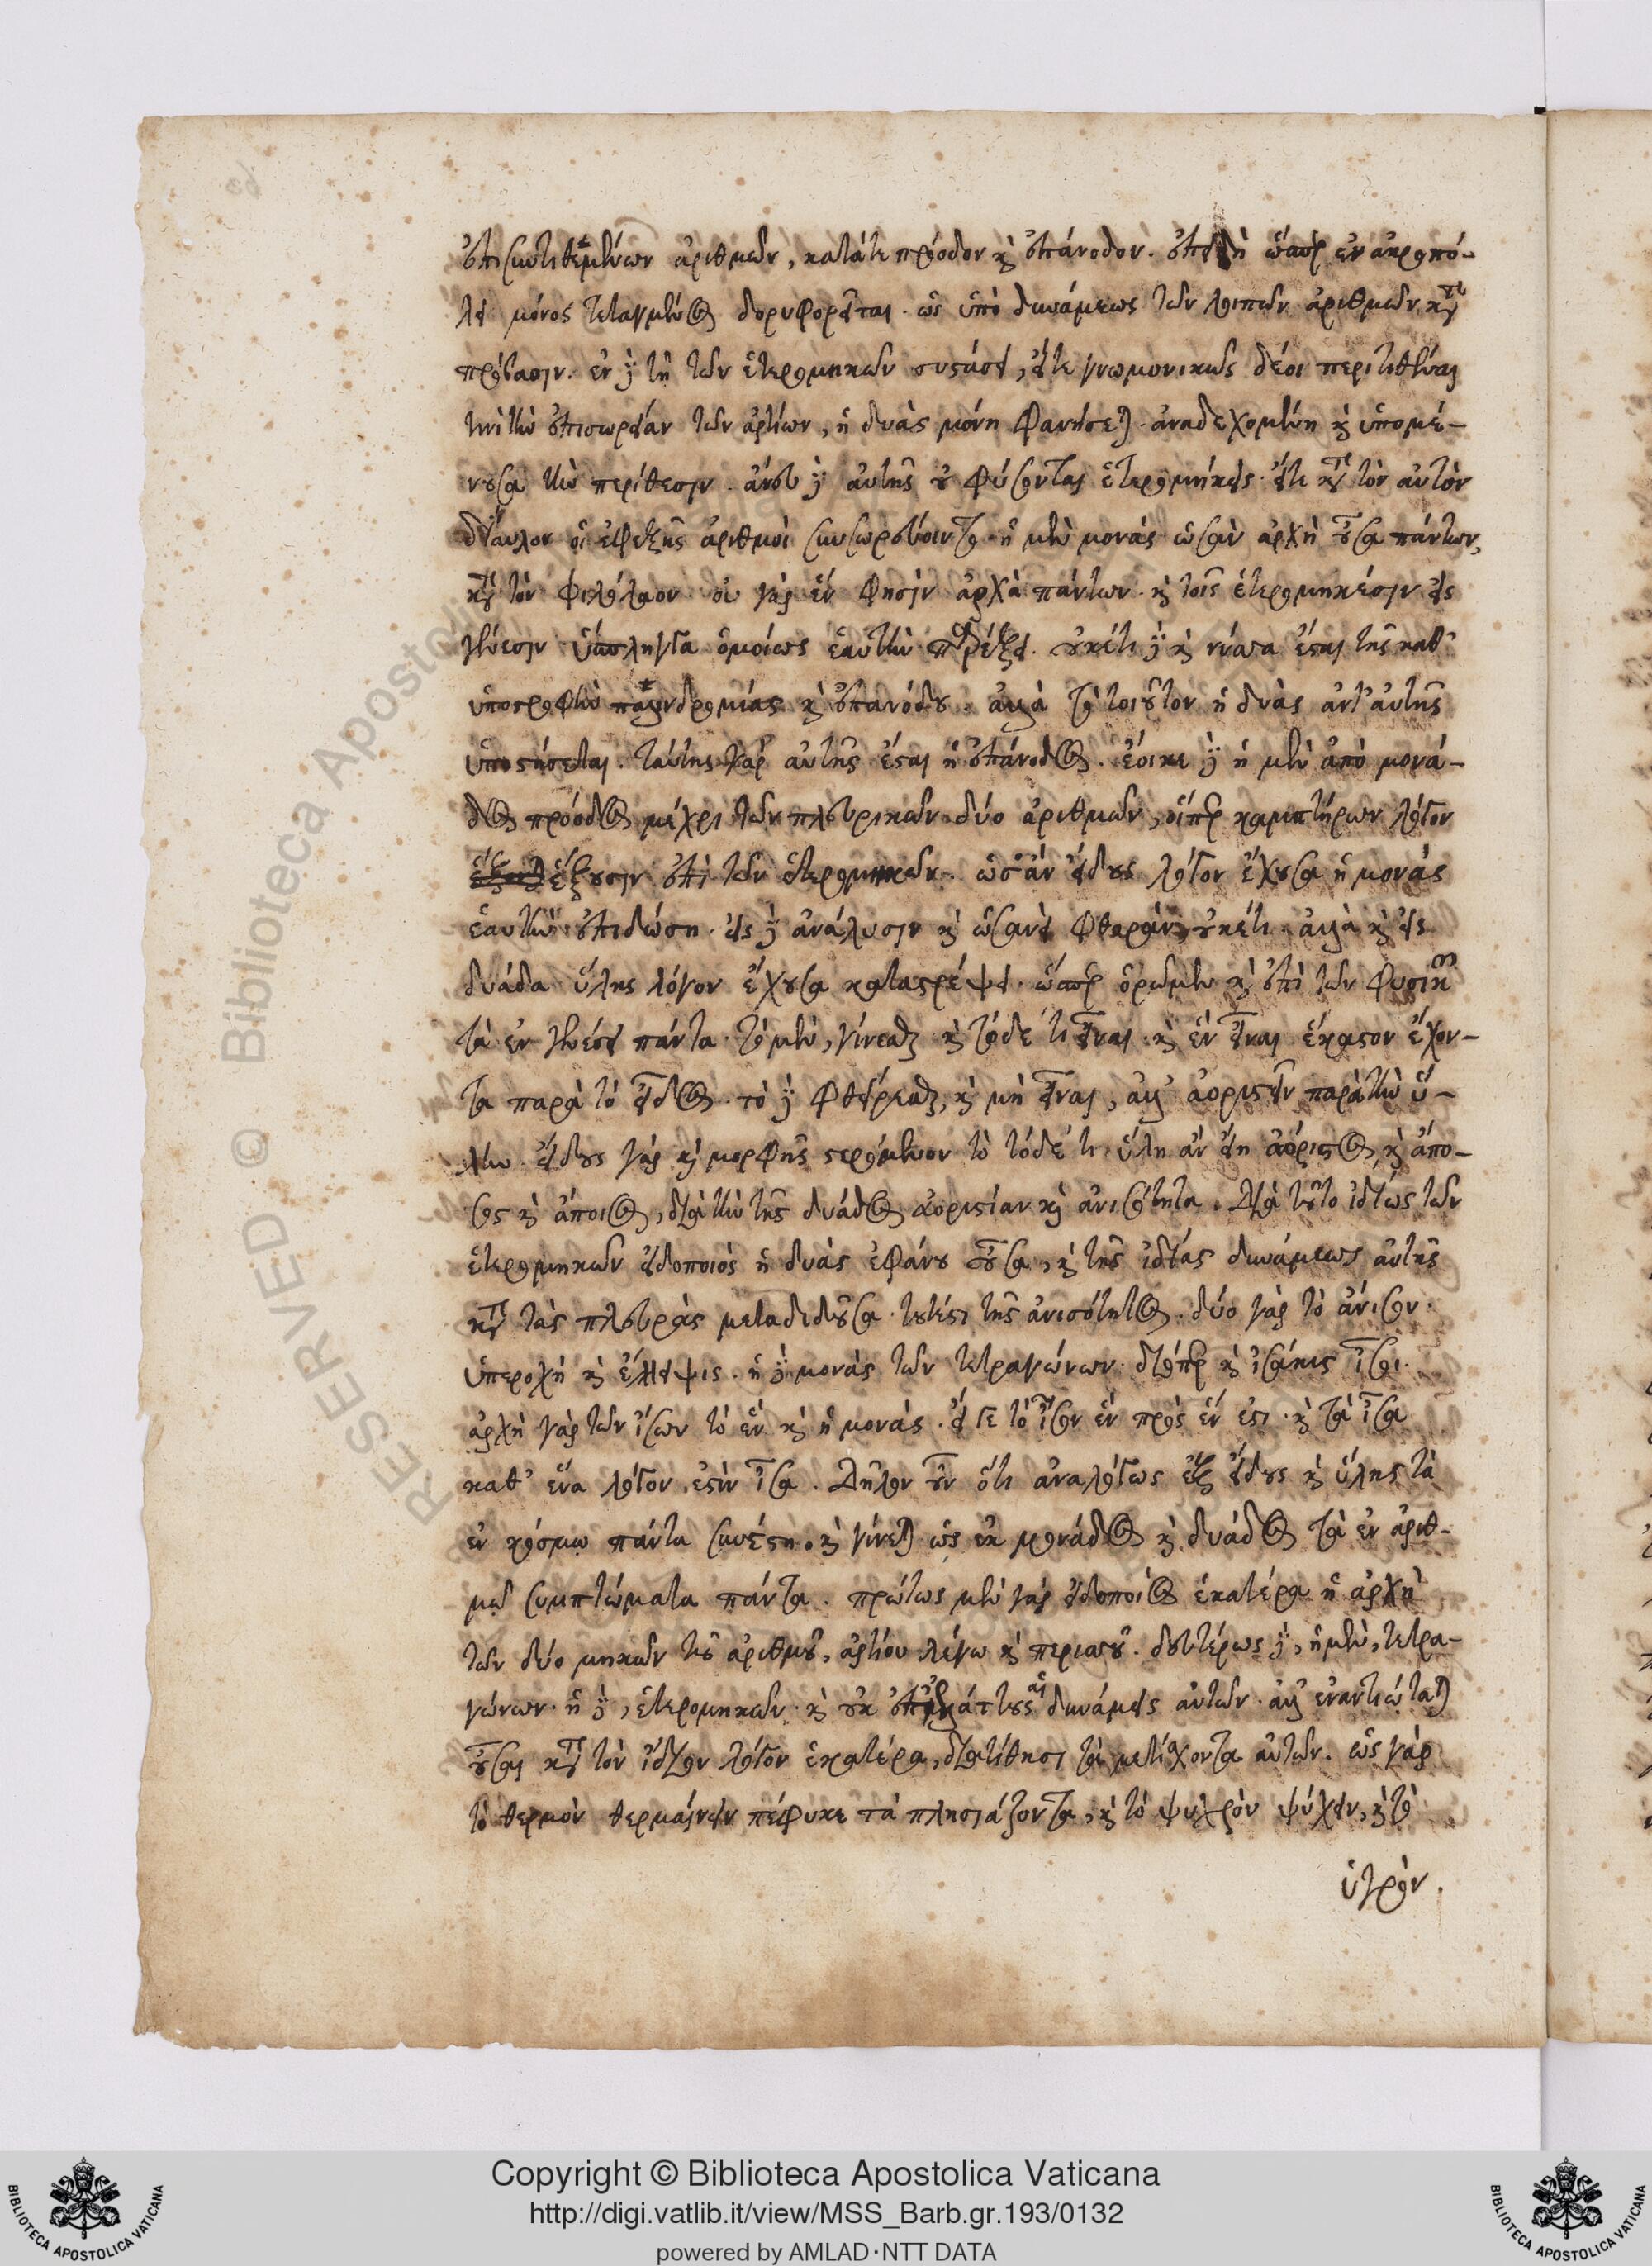 ἐπισυντιθεμένων ἀριθμῶν, κατά τε πρόοδον κ̀ ἐπάνοδον. ἐπειδὴ ὥσπερ ἐν ἀκροπό-
λει μόνος τεταγμένος δορυφορεῖται. ὡς ὑπὸ δυνάμεως τῶν λοιπῶν ἀριθμῶν κατὰ
πρόβασιν. ἐν δὲ τῇ τῶν ἑτερομηκῶν συστάσει, εἴτε γνωμονικῶς δέοι περιτιθέναι
τινὶ τὴν ἐπισωρείαν τῶν ἀρτίων, ἡ δυὰς μόνη φανήσεται ἀναδεχομένη κ̀ ὑπομέ-
νουσα τὴν περίθεσιν. ἄνευ δὲ αὐτῆς οὐ φύσονται ἑτερομήκεις. εἴτε κατὰ τὸν αὐτὸν
δίαυλον οἱ ἐφεξῆς ἀριθμοὶ συσσωρεύοιντο. ἡ μὲν μονὰς ὡσὰν ἀρχὴ οὖσα πάντων,
κατὰ τὸν Φιλόλαον. οὐ γὰρ ἕν φησιν ἀρχὰ πάντων. κ̀ τοῖς ἑτερομηκέσιν εἰς
γένεσιν ὕσπληγγα ὁμοίως ἑαυτὴν παρέξει. οὐκέτι δὲ κ̀ νύσσα ἔσται τῆς καθ'
ὑποστροφὴν παλινδρομίας κ̀ ἐπανόδου. ἀλλὰ τὸ τοιοῦτον ἡ δυὰς ἀντ' αὐτῆς
ὑποστήσεται. ταύτης γὰρ αὐτῆς ἔσται ἡ ἐπάνοδος. ἔοικε δὲ ἡ μὲν ἀπὸ μονά-
δος πρόοδος μέχρι τῶν πλευρικῶν δύο ἀριθμῶν, οἵπερ καμπτήρων λόγον
ἕξουσιν ἐπὶ τῶν ἑτερομηκῶν. ὡσὰν εἴδους λόγον ἔχουσα ἡ μονὰς
ἑαυτὴν ἐπιδώσῃ. εἰς δὲ ἀνάλυσιν κ̀ ὡσανεὶ φθορὰν, οὐκέτι. ἀλλὰ κ̀ εἰς
δυάδα ὕλης λόγον ἔχουσα καταστρέψει. ὥσπερ ὁρῶμεν κ̀ ἐπὶ τῶν φυσικῶν
τὰ ἐν γενέσει πάντα. τὸ μὲν, γίνεσθαι κ̀ τόδε τι εἶναι. κ̀ ἓν εἶναι ἕκαστον ἔχον-
τα παρὰ τὸ εἶδος. τὸ δὲ φθείρεσθαι, κ̀ μὴ εἶναι, ἀλλ' ἀοριστεῖν παρὰ τὴν ὕ-
λην. εἴδους γὰρ κ̀ μορφῆς στερόμενον τὸ τόδε τι ὕλη ἂν εἴη ἀόριστος, κ̀ ἄπο-
σος κ̀ ἄποιος, διὰ τὴν τῆς δυάδος ἀοριστίαν κ̀ ἀνισότητα. Διὰ τοῦτο ἰδίως τῶν
ἑτερομηκῶν εἰδοποιὸς ἡ δυὰς ἐφάνη οὖσα, κ̀ τῆς ἰδίας δυνάμεως αὐτῆς
κατὰ τὰς πλευρὰς μεταδιδοῦσα. τουτέστι τῆς ἀνισότητος. δύο γὰρ τὸ ἄνισον.
ὑπεροχὴ κ̀ ἔλλειψις. ἡ δὲ μονὰς τῶν τετραγώνων. διόπερ κ̀ ἰσάκις ἴσοι.
ἀρχὴ γὰρ τῶν ἴσων τὸ ἓν κ̀ ἡ μονάς. εἴ γε τὸ ἴσον ἓν πρὸς ἕν ἐστι. κ̀ τὰ ἴσα
καθ' ἕνα λόγον ἐστὶν ἴσα. Δῆλον οὖν ὅτι ἀναλόγως ἐξ εἴδους κ̀ ὕλης τὰ
ἐν κόσμῳ πάντα συνέστη. κ̀ γίνεται ὡς ἐκ μονάδος κ̀ δυάδος τὰ ἐν ἀριθ-
μῷ συμπτώματα πάντα. πρώτως μὲν γὰρ εἰδοποιὸς ἑκατέρα ἡ ἀρχὴ
τῶν δύο μηκῶν τοῦ ἀριθμοῦ, ἀρτίου λέγω κ̀ περισσοῦ. δευτέρως δὲ, ἡ μὲν, τετρα-
γώνων. ἡ δὲ, ἑτερομηκῶν. κ̀ οὐκ ἐπαλλάττους αἱ δυνάμεις αὐτῶν. ἀλλ' ἐναντιώταται
οὖσαι κατὰ τὸν ἴδιον λόγον ἑκατέρα, διατίθησι τὰ μετέχοντα αὐτῶν. ὡς γὰρ
τὸ θερμὸν θερμαίνειν πέφυκε τὰ πλησιάζοντα, κ̀ τὸ ψυχρὸν ψύχειν, κ̀ τὸ
ὑγρὸν.
RESERVED © Biblioteca Apostolica
Copyright © Biblioteca Apostolica Vaticana
http://digi.vatlib.it/view/MSS_Barb.gr.193/0132
powered by AMLAD·NTT DATA
BIBLIOTECA APOSTOLICA VATICANA
BIBLIOTECA APOSTOLICA VATICANA